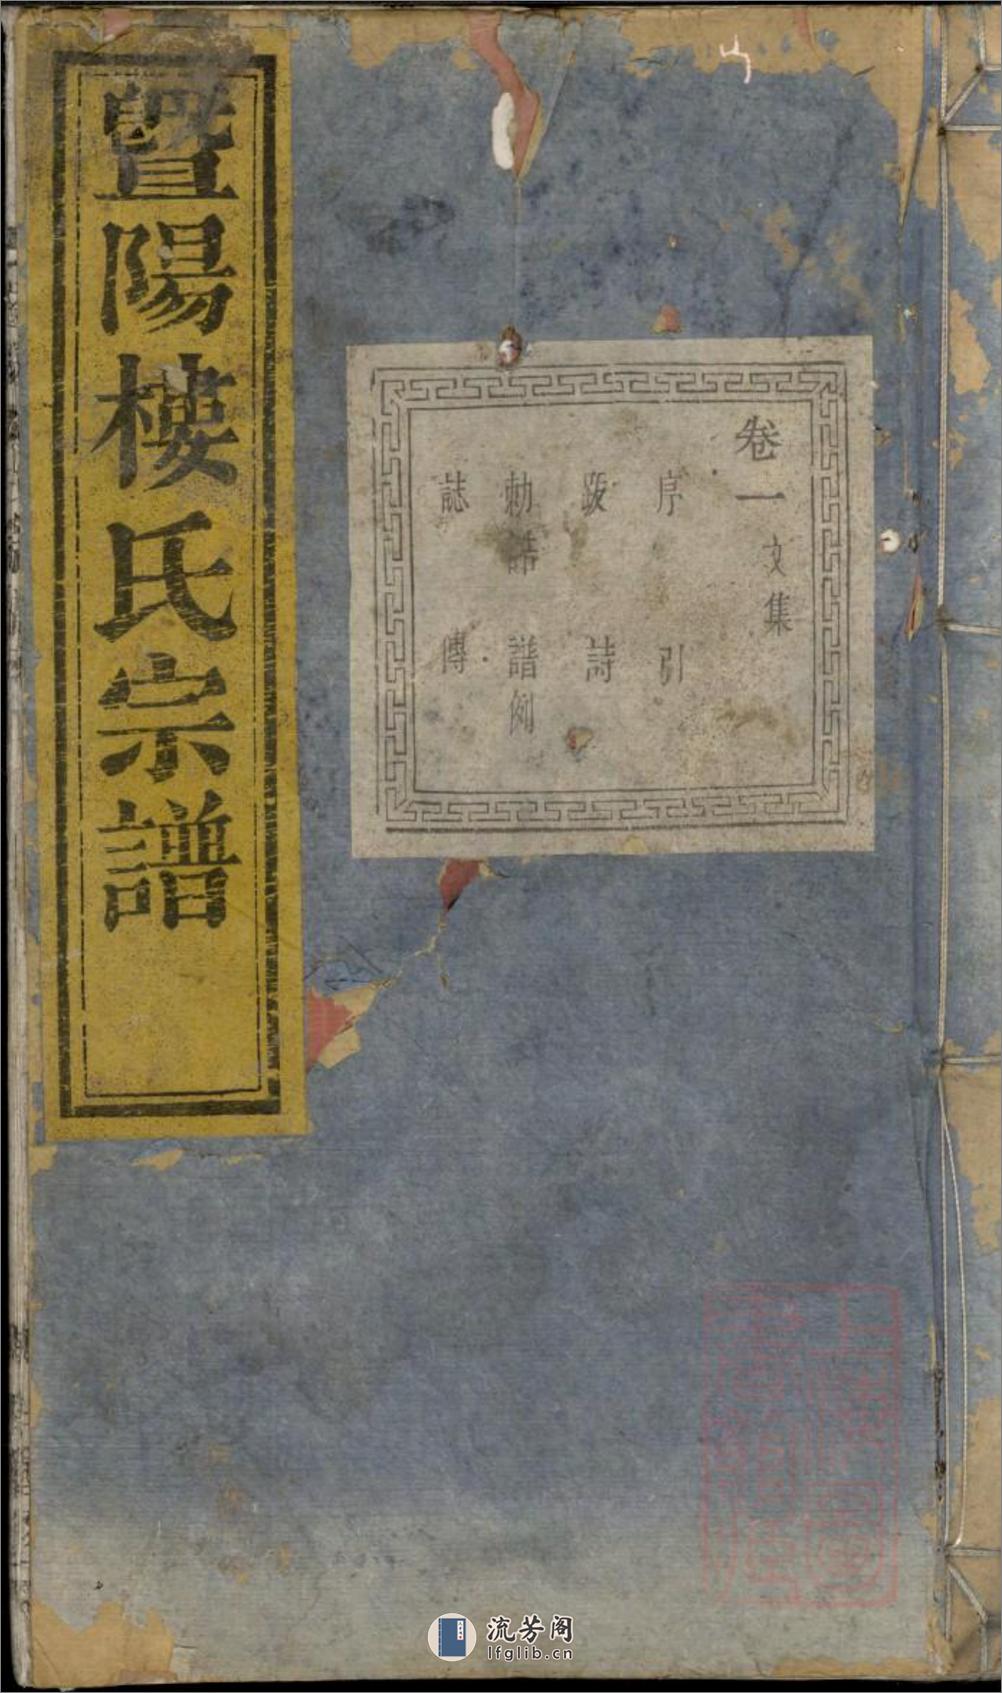 暨陽樓氏宗譜
卷一 文集
序 引
跋 詩
勅誥 譜例
誌 傳
上海圖書館藏
流芳阁
lfglib.cn